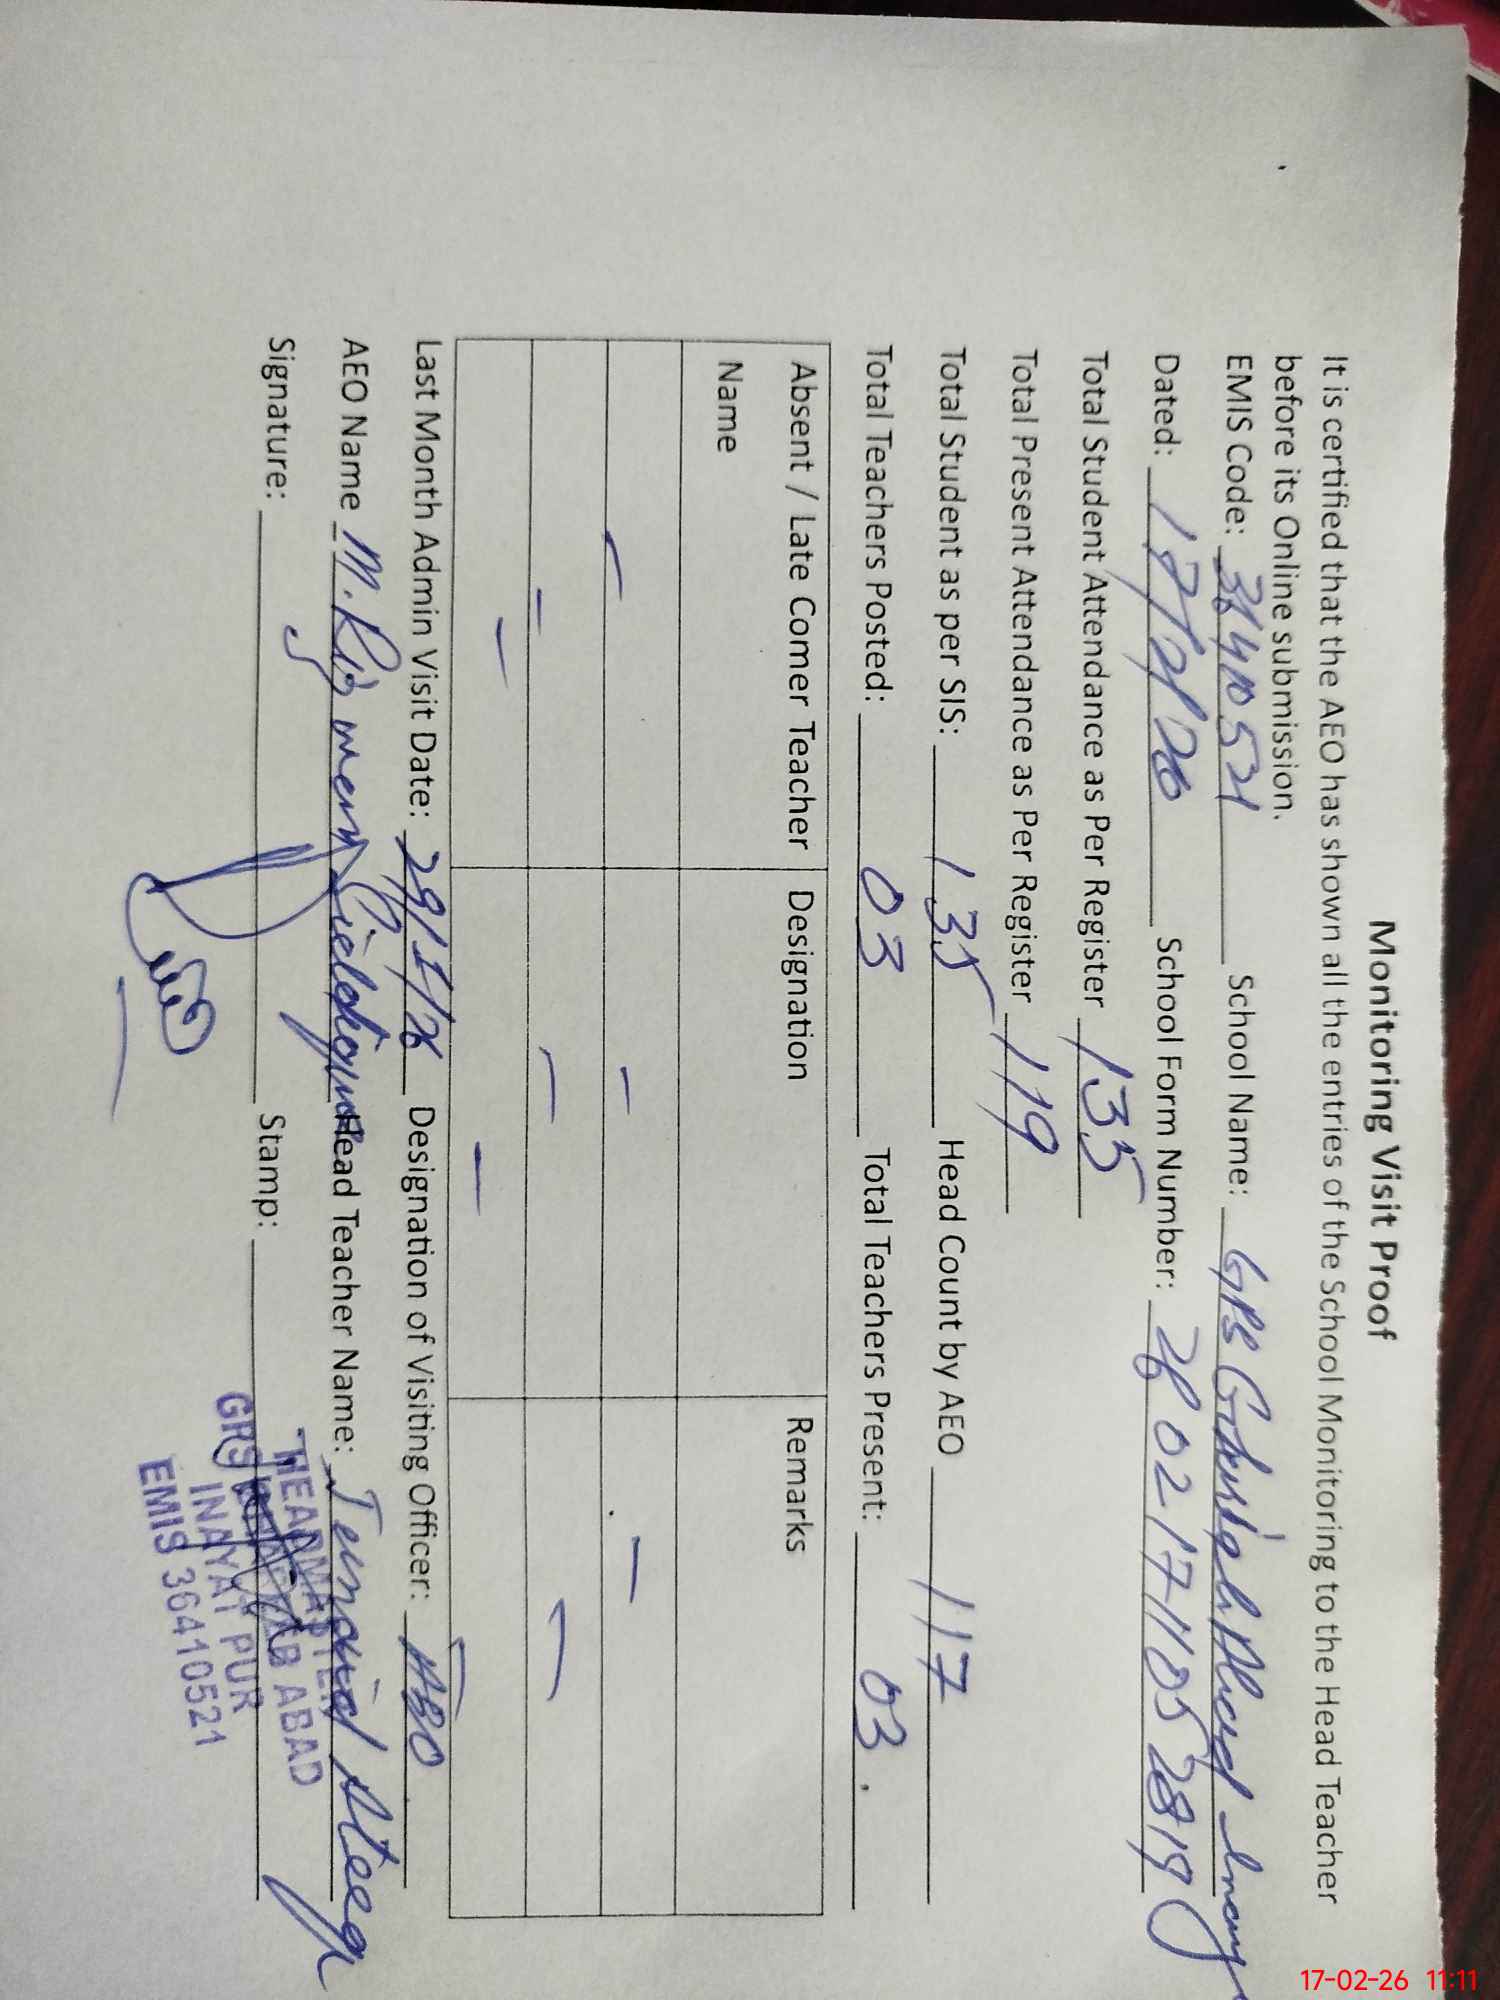 Monitoring Visit Proof
It is certified that the AEO has shown all the entries of the School Monitoring to the Head Teacher
before its Online submission.
EMIS Code: 36410521 School Name: GPS
Dated: 17/2/26 School Form Number: 26 02 17 1105 2819
Total Student Attendance as Per Register 135
Total Present Attendance as Per Register 119
Total Student as per SIS: 135 Head Count by AEO 117
Total Teachers Posted: 03 Total Teachers Present: 03.
Absent / Late Comer Teacher Name Designation Remarks
— — —
— — —
— —
Last Month Admin Visit Date: 29/1/26 Designation of Visiting Officer: AEO
AEO Name M. Head Teacher Name:
Signature: Stamp:
HEADMASTER
GPS ABAD
INAYAT PUR
EMIS 36410521
17-02-26 11:11